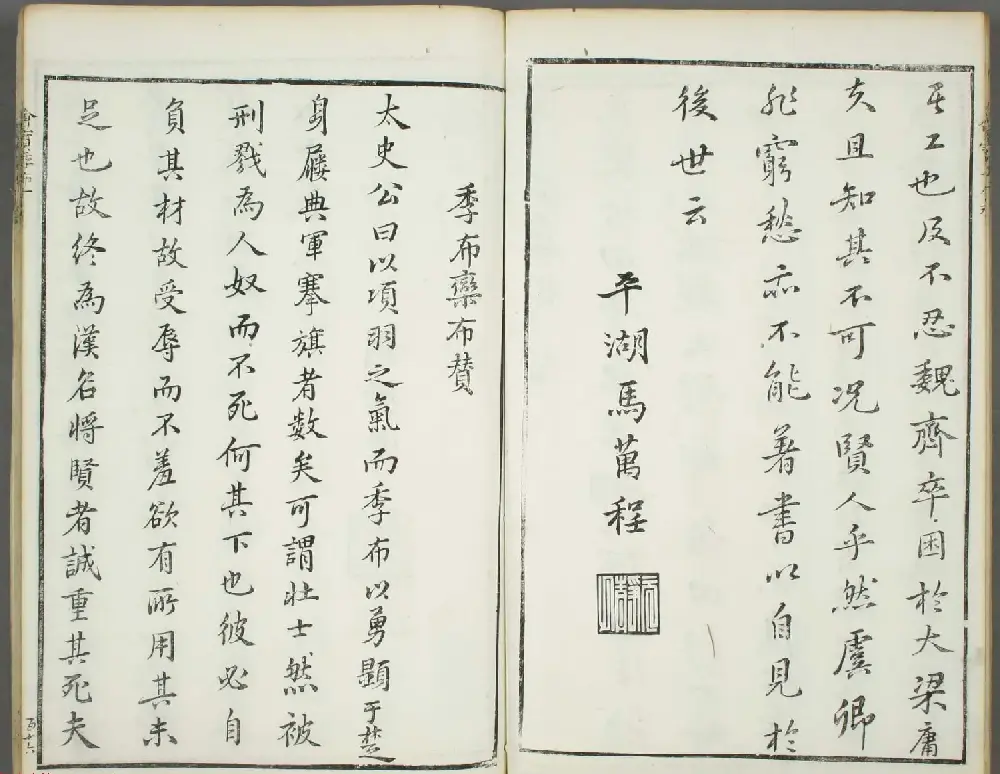 其工也及不忍魏齊卒困於大梁庸
夫且知其不可况賢人乎然虞卿
非窮愁亦不能著書以自見於
後世云
平湖馬萬程
季布欒布贊
太史公曰以項羽之氣而季布以勇顯于楚
身屨典軍搴旗者數矣可謂壯士然被
刑戮為人奴而不死何其下也彼必自
負其材故受辱而不羞欲有所用其未
足也故終為漢名將賢者誠重其死夫